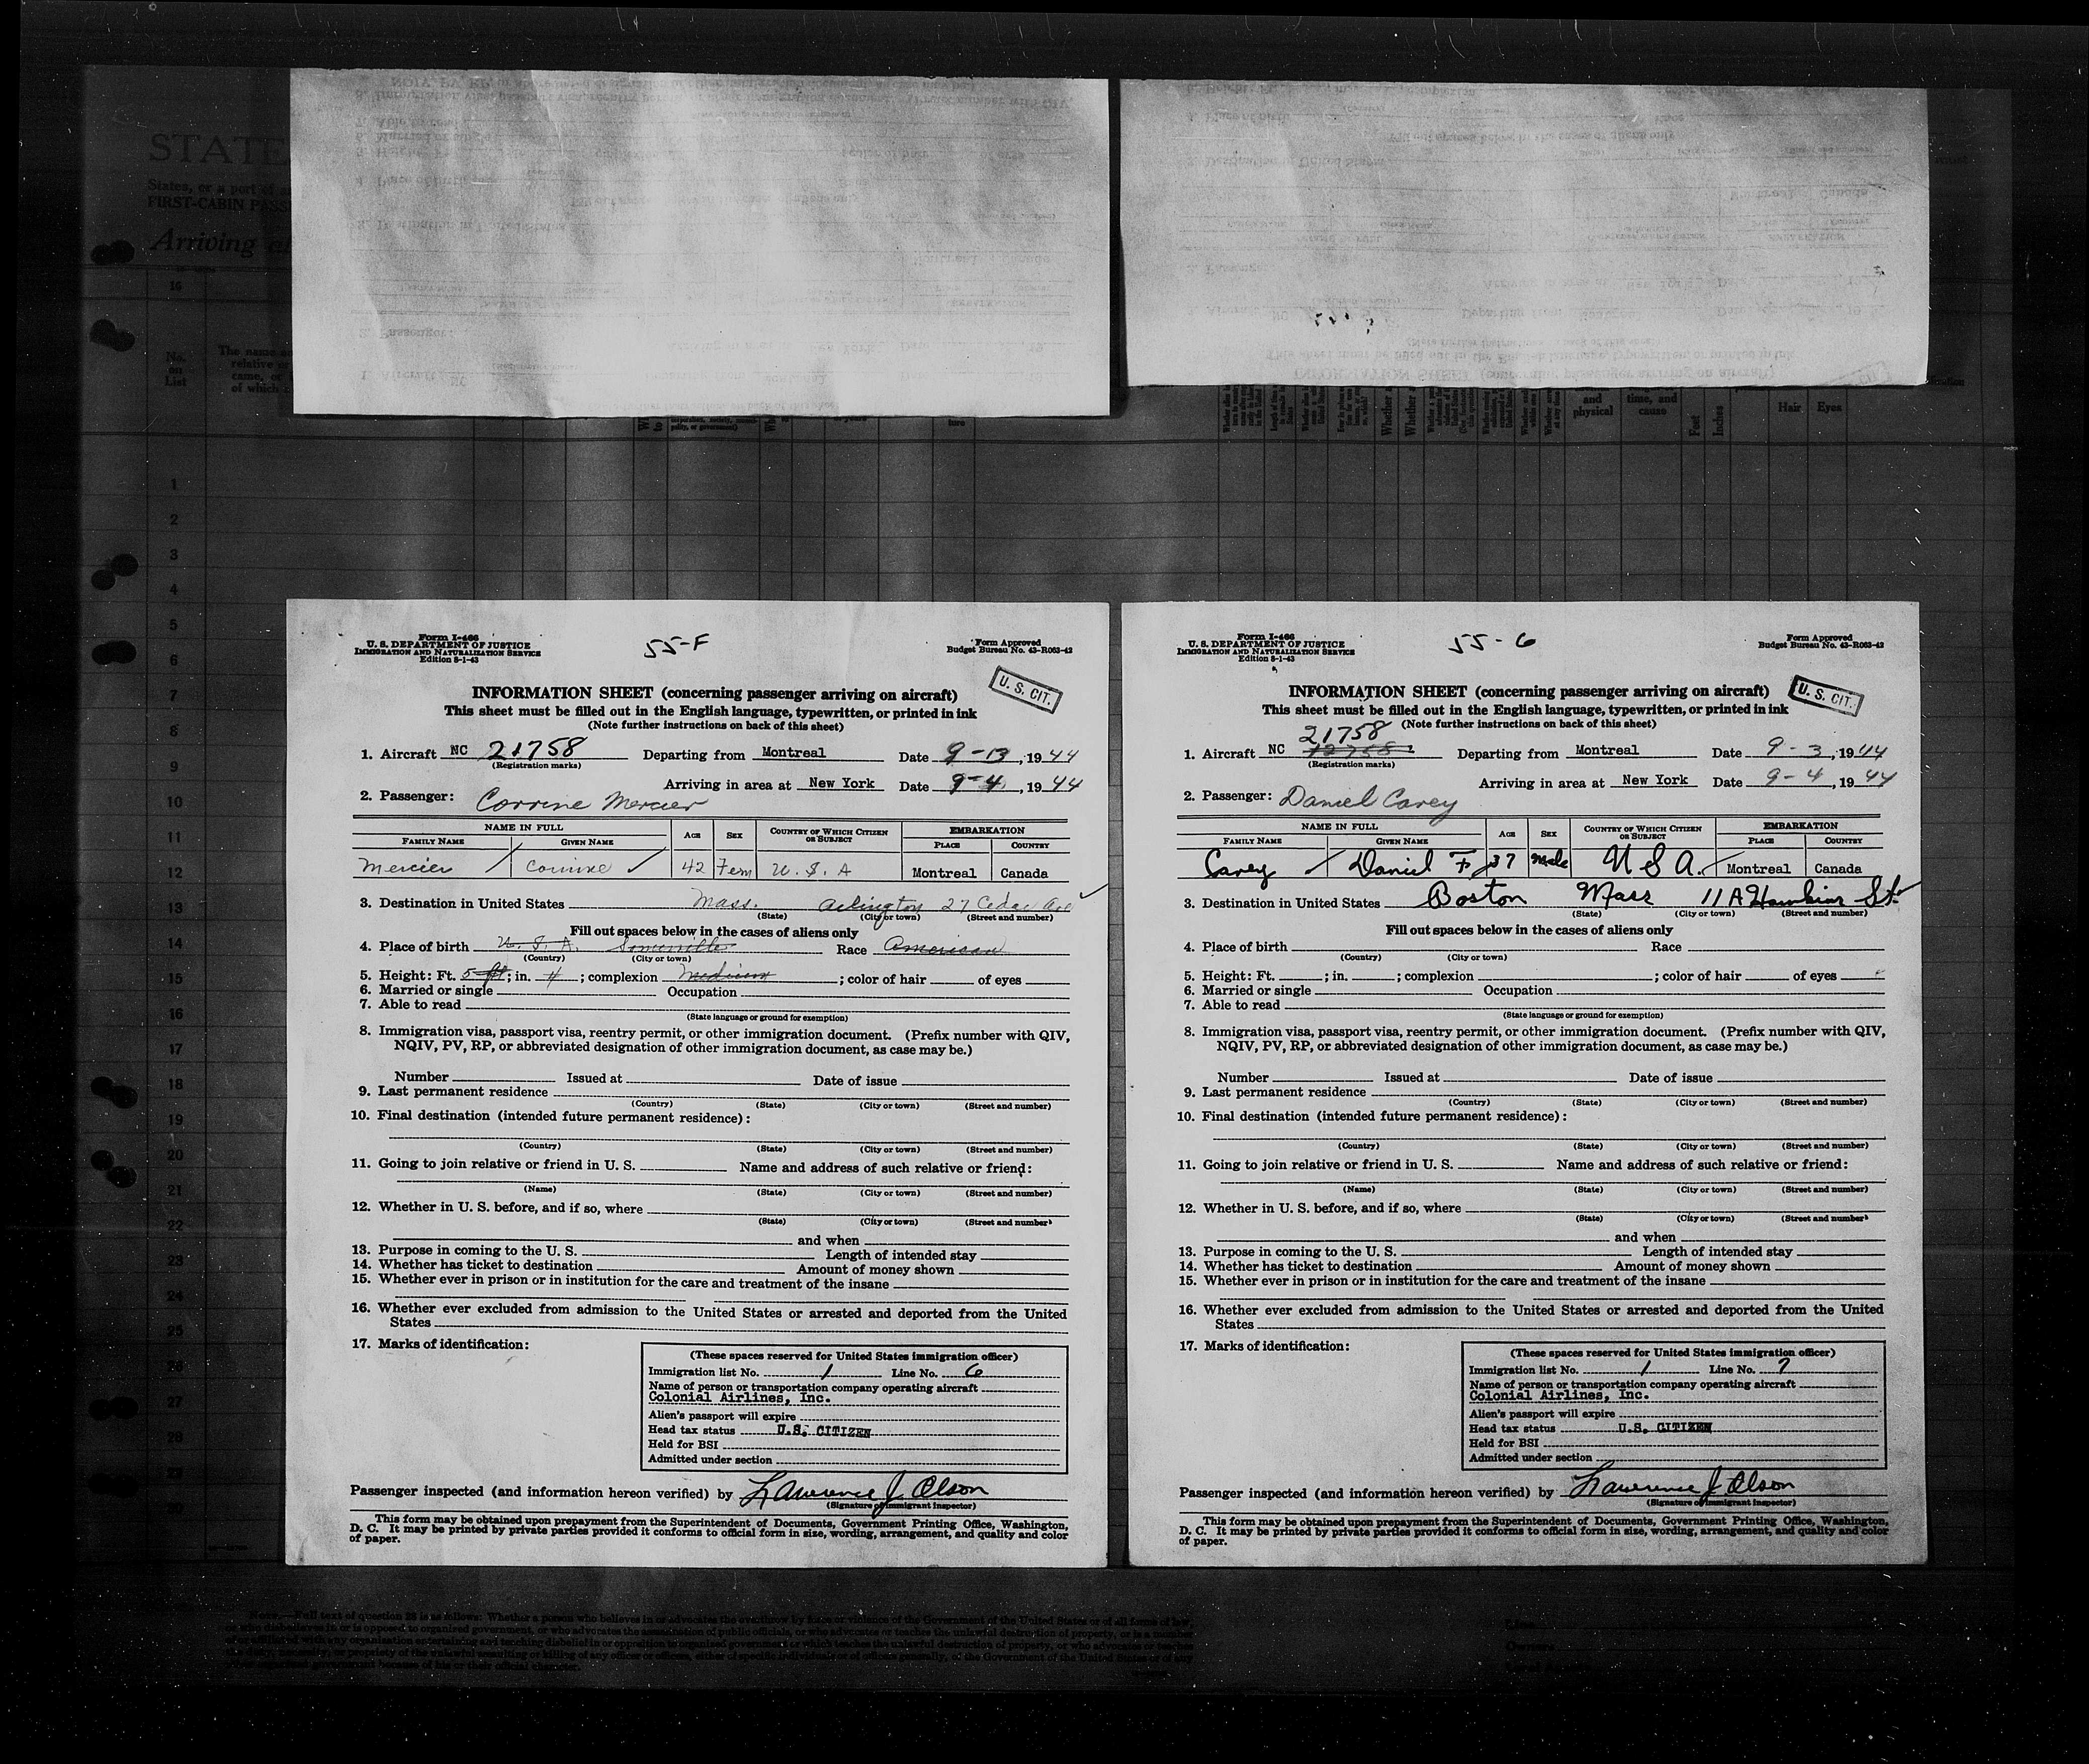 STATE
States, or a port of
FIRST-CABIN PASS
Arriving a
No.
on
List
The name
relative
came, or
of which
and
physical
time, and
cause
Feet
Inches
Hair Eyes
1
2
3
4
5
6
7
8
9
10
11
12
13
14
15
16
17
18
19
20
21
22
23
24
25
26
27
28
29
Form I-466
U. S. DEPARTMENT OF JUSTICE
IMMIGRATION AND NATURALIZATION SERVICE
Edition 8-1-43
55-F
Form Approved
Budget Bureau No. 43-R063-42
U. S. CIT.
INFORMATION SHEET (concerning passenger arriving on aircraft)
This sheet must be filled out in the English language, typewritten, or printed in ink
(Note further instructions on back of this sheet)
1. Aircraft NC 21758 Departing from Montreal Date 9-13, 1944
(Registration marks)
Arriving in area at New York Date 9-4, 1944
2. Passenger: Corrine Mercier
NAME IN FULL AGE SEX COUNTRY OF WHICH CITIZEN OR SUBJECT EMBARKATION
FAMILY NAME GIVEN NAME PLACE COUNTRY
Mercier Corrine 42 Fem U. S. A Montreal Canada
3. Destination in United States Mass. Arlington 27 Cedar Ave
(State) (City or town) (Street and number)
Fill out spaces below in the cases of aliens only
4. Place of birth U. S. A. Somerville Race American
(Country) (City or town)
5. Height: Ft. 5 ft; in. 4; complexion Medium; color of hair of eyes
6. Married or single Occupation
7. Able to read
(State language or ground for exemption)
8. Immigration visa, passport visa, reentry permit, or other immigration document. (Prefix number with QIV,
NQIV, PV, RP, or abbreviated designation of other immigration document, as case may be.)
Number Issued at Date of issue
9. Last permanent residence
(Country) (State) (City or town) (Street and number)
10. Final destination (intended future permanent residence):
(Country) (State) (City or town) (Street and number)
11. Going to join relative or friend in U. S. Name and address of such relative or friend:
(Name) (State) (City or town) (Street and number)
12. Whether in U. S. before, and if so, where
(State) (City or town) (Street and number)
and when
13. Purpose in coming to the U. S. Length of intended stay
14. Whether has ticket to destination Amount of money shown
15. Whether ever in prison or in institution for the care and treatment of the insane
16. Whether ever excluded from admission to the United States or arrested and deported from the United
States
17. Marks of identification:
(These spaces reserved for United States immigration officer)
Immigration list No. 1 Line No. 6
Name of person or transportation company operating aircraft
Colonial Airlines, Inc.
Alien's passport will expire
Head tax status U.S. CITIZEN
Held for BSI
Admitted under section
Passenger inspected (and information hereon verified) by Lawrence J Olson
(Signature of immigrant inspector)
This form may be obtained upon prepayment from the Superintendent of Documents, Government Printing Office, Washington,
D. C. It may be printed by private parties provided it conforms to official form in size, wording, arrangement, and quality and color
of paper.
Form I-466
U. S. DEPARTMENT OF JUSTICE
IMMIGRATION AND NATURALIZATION SERVICE
Edition 8-1-43
55-G
Form Approved
Budget Bureau No. 43-R063-42
U. S. CIT.
INFORMATION SHEET (concerning passenger arriving on aircraft)
This sheet must be filled out in the English language, typewritten, or printed in ink
(Note further instructions on back of this sheet)
21758
1. Aircraft NC 12758 Departing from Montreal Date 9-3, 1944
(Registration marks)
Arriving in area at New York Date 9-4, 1944
2. Passenger: Daniel Carey
NAME IN FULL AGE SEX COUNTRY OF WHICH CITIZEN OR SUBJECT EMBARKATION
FAMILY NAME GIVEN NAME PLACE COUNTRY
Carey Daniel F. 37 Male U S A. Montreal Canada
3. Destination in United States Boston Mass 11A Hawkins St.
(State) (City or town) (Street and number)
Fill out spaces below in the cases of aliens only
4. Place of birth Race
(Country) (City or town)
5. Height: Ft. ; in. ; complexion ; color of hair of eyes
6. Married or single Occupation
7. Able to read
(State language or ground for exemption)
8. Immigration visa, passport visa, reentry permit, or other immigration document. (Prefix number with QIV,
NQIV, PV, RP, or abbreviated designation of other immigration document, as case may be.)
Number Issued at Date of issue
9. Last permanent residence
(Country) (State) (City or town) (Street and number)
10. Final destination (intended future permanent residence):
(Country) (State) (City or town) (Street and number)
11. Going to join relative or friend in U. S. Name and address of such relative or friend:
(Name) (State) (City or town) (Street and number)
12. Whether in U. S. before, and if so, where
(State) (City or town) (Street and number)
and when
13. Purpose in coming to the U. S. Length of intended stay
14. Whether has ticket to destination Amount of money shown
15. Whether ever in prison or in institution for the care and treatment of the insane
16. Whether ever excluded from admission to the United States or arrested and deported from the United
States
17. Marks of identification:
(These spaces reserved for United States immigration officer)
Immigration list No. 1 Line No. 7
Name of person or transportation company operating aircraft
Colonial Airlines, Inc.
Alien's passport will expire
Head tax status U.S. CITIZEN
Held for BSI
Admitted under section
Passenger inspected (and information hereon verified) by Lawrence J Olson
(Signature of immigrant inspector)
This form may be obtained upon prepayment from the Superintendent of Documents, Government Printing Office, Washington,
D. C. It may be printed by private parties provided it conforms to official form in size, wording, arrangement, and quality and color
of paper.